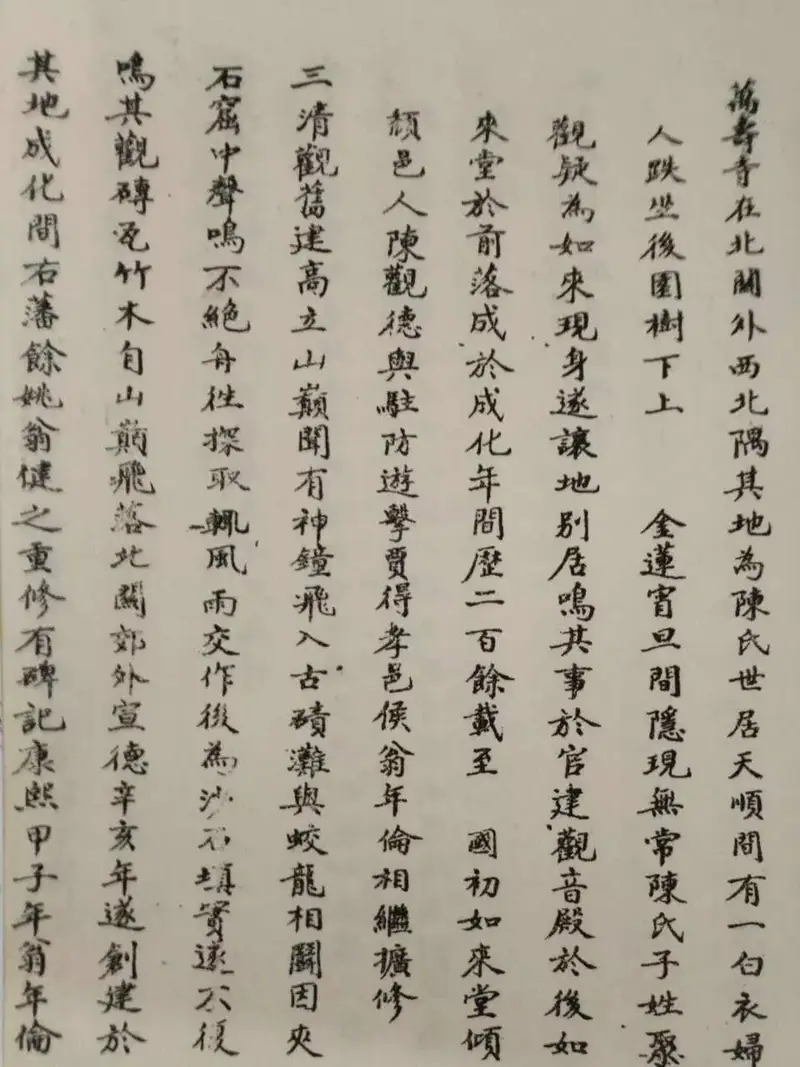 萬壽寺在北關外西北隅其地為陳氏世居天順間有一白衣婦
人跌坐後園樹下上 金蓮宵旦間隱現無常陳氏子姓聚
觀疑為如來現身遂讓地別居鳴其事於官建觀音殿於後如
來堂於前落成於成化年間歷二百餘載至 國初如來堂傾
頹邑人陳觀德與駐防遊擊賈得孝邑侯翁年倫相繼擴修
三清觀舊建高立山巔聞有神鐘飛入古磧灘與蛟龍相鬭因夾
石窟中聲鳴不絕舟往探取輒風雨交作後為沙石填實遂不復
鳴其觀磚瓦竹木自山巔飛落北關郊外宣德辛亥年遂創建於
其地成化間右藩餘姚翁健之重修有碑記康熙甲子年翁年倫